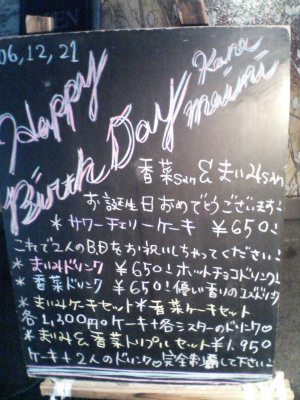 06,12,21
Happy
Kana
maimi
Birth Day
香菜San & まいみSan
お誕生日おめでとうございます!
* サワーチェリーケーキ ¥650!
これで2人のBDをお祝いしちゃってください!
* まいみドリンク ¥650! ホットチョコドリンク!
* 香菜ドリンク ¥650! 優しい香りの
* まいみケーキセット * 香菜ケーキセット
各1,300円。ケーキ+各ミスターのドリンク♡
* まいみ&香菜トリプルセット ¥1,950
ケーキ+2人のドリンク♡完全制覇して下さい!